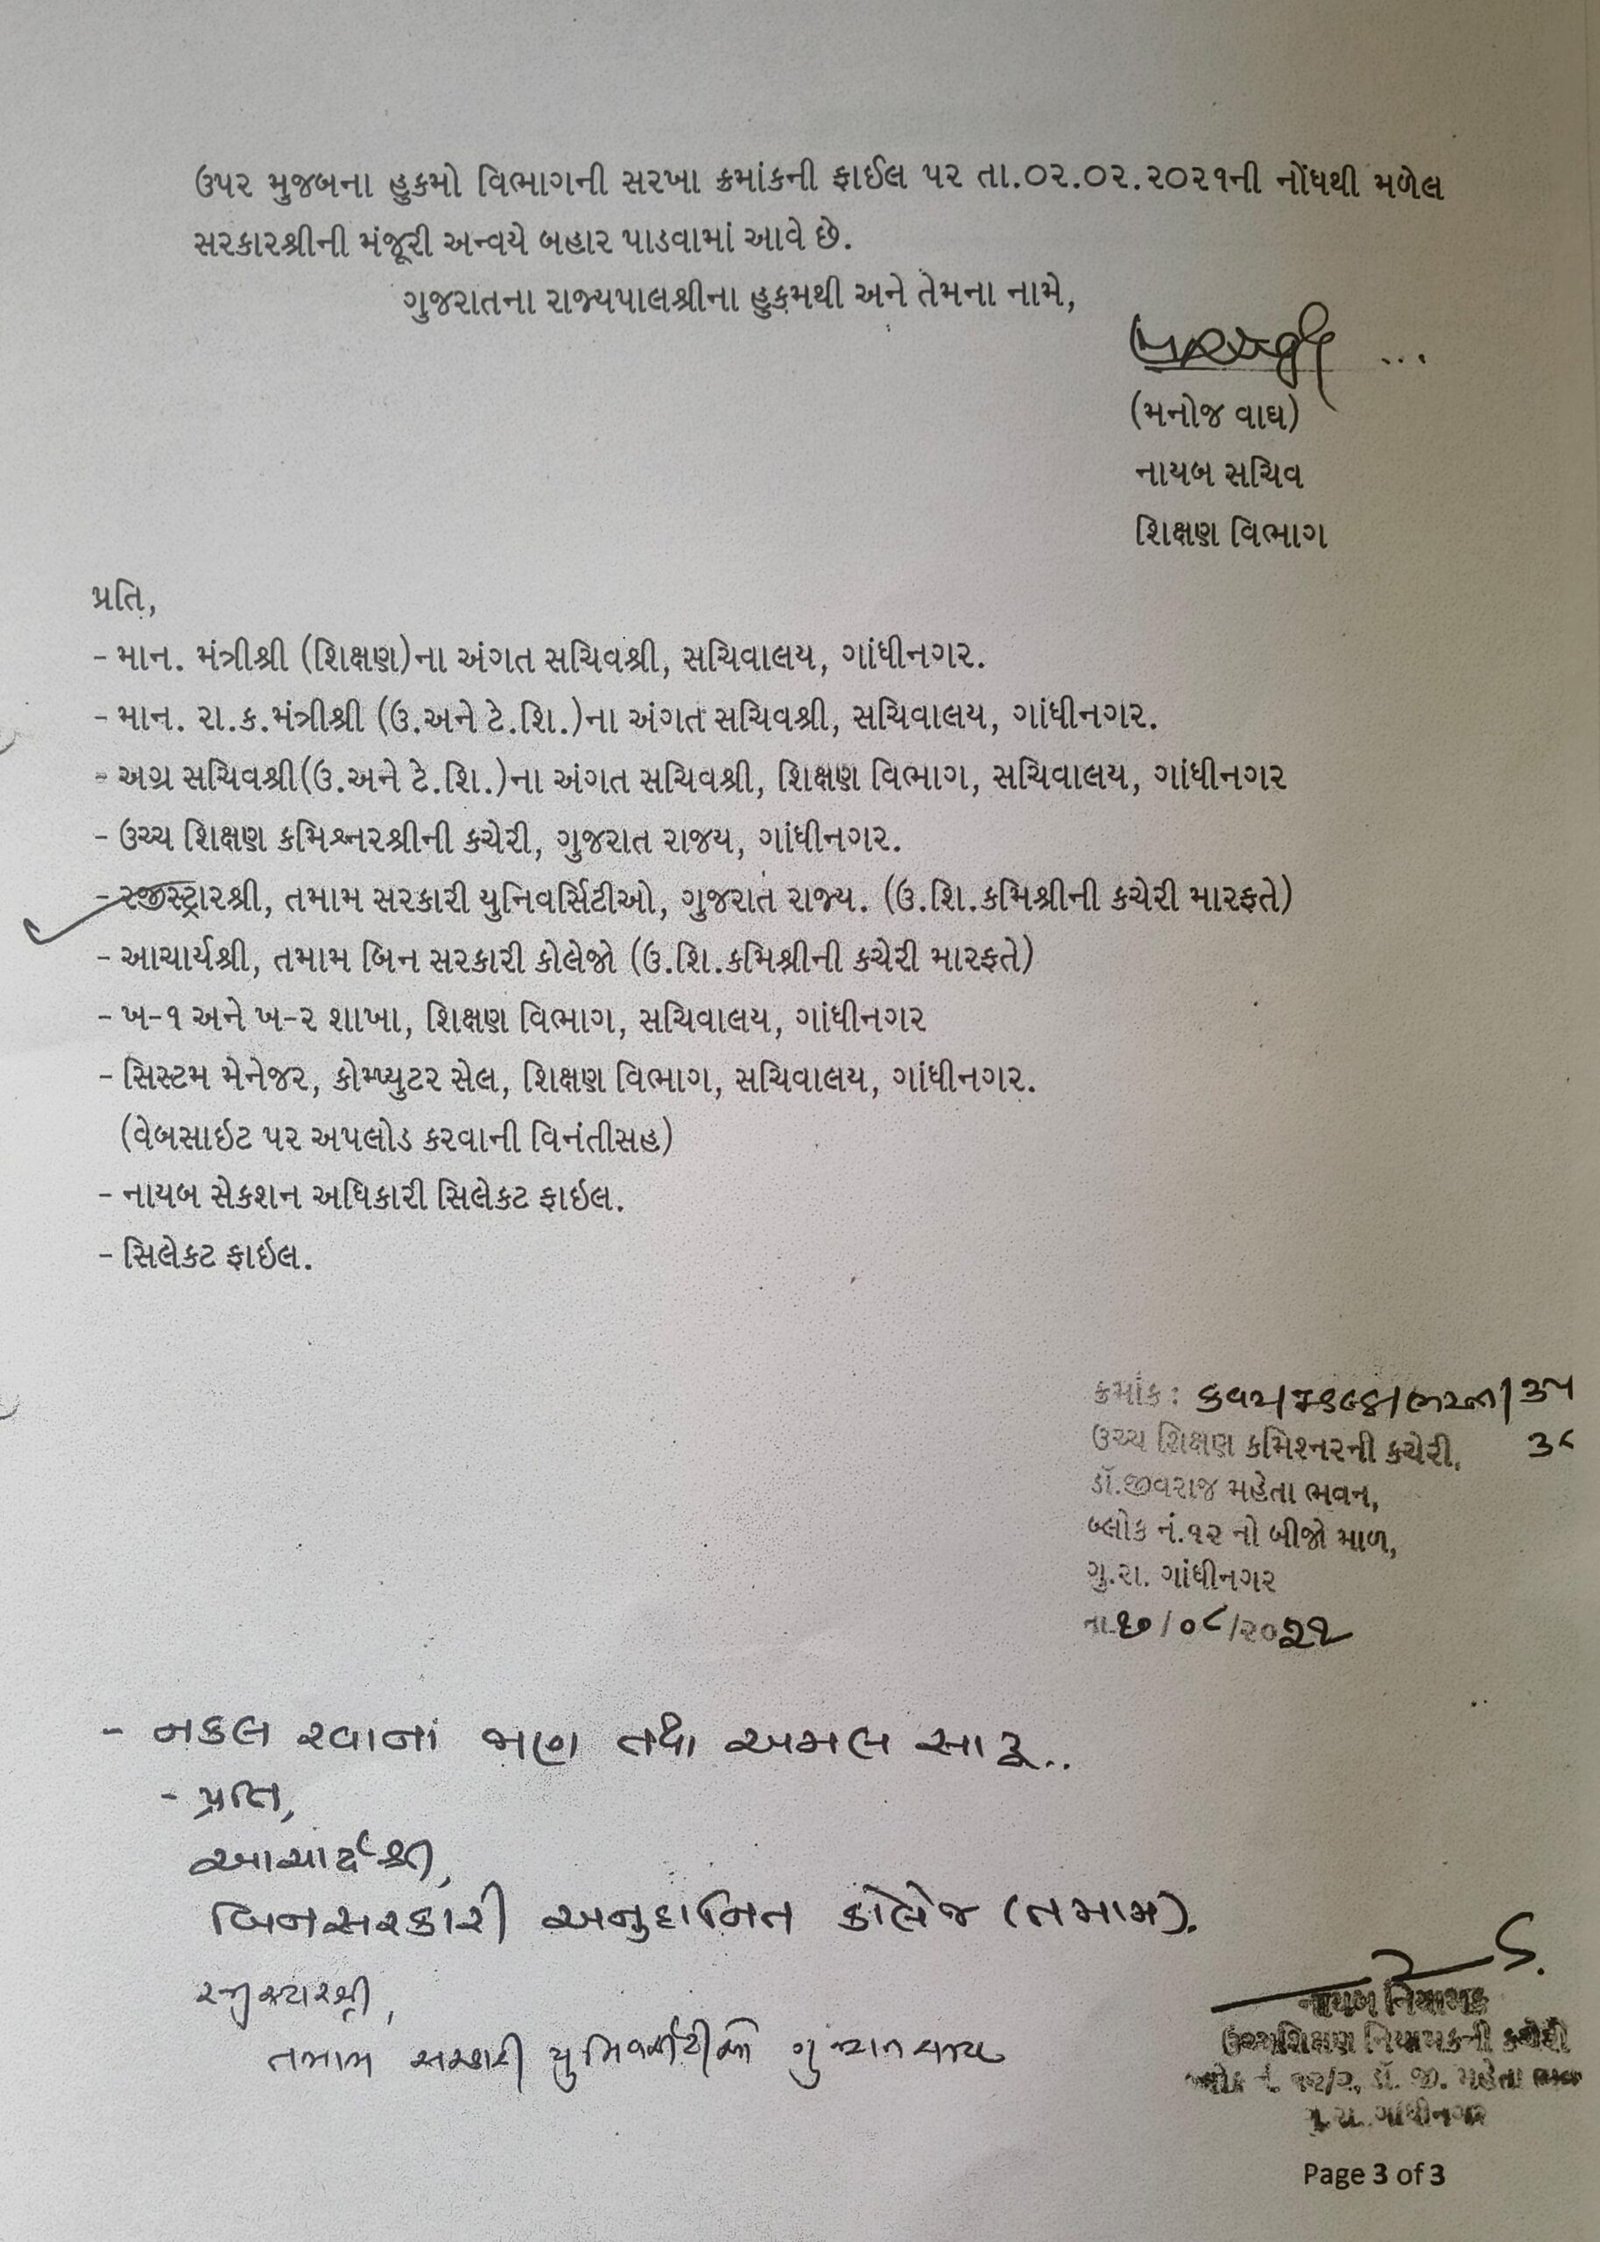 ઉપર મુજબના હુકમો વિભાગની સરખા ક્રમાંકની ફાઈલ પર તા.૦૨.૦૨.૨૦૨૧ની નોંધથી મળેલ
સરકારશ્રીની મંજૂરી અન્વયે બહાર પાડવામાં આવે છે.
ગુજરાતના રાજ્યપાલશ્રીના હુકમથી અને તેમના નામે,
(મનોજ વાઘ)
નાયબ સચિવ
શિક્ષણ વિભાગ
પ્રતિ,
- માન. મંત્રીશ્રી (શિક્ષણ)ના અંગત સચિવશ્રી, સચિવાલય, ગાંધીનગર.
- માન. રા.ક.મંત્રીશ્રી (ઉ.અને ટે.શિ.)ના અંગત સચિવશ્રી, સચિવાલય, ગાંધીનગર.
- અગ્ર સચિવશ્રી(ઉ.અને ટે.શિ.)ના અંગત સચિવશ્રી, શિક્ષણ વિભાગ, સચિવાલય, ગાંધીનગર
- ઉચ્ચ શિક્ષણ કમિશ્નરશ્રીની કચેરી, ગુજરાત રાજય, ગાંધીનગર.
- રજીસ્ટ્રારશ્રી, તમામ સરકારી યુનિવર્સિટીઓ, ગુજરાત રાજ્ય. (ઉ.શિ.કમિશ્રીની કચેરી મારફતે)
- આચાર્યશ્રી, તમામ બિન સરકારી કોલેજો (ઉ.શિ.કમિશ્રીની કચેરી મારફતે)
- ખ-૧ અને ખ-૨ શાખા, શિક્ષણ વિભાગ, સચિવાલય, ગાંધીનગર
- સિસ્ટમ મેનેજર, કોમ્પ્યુટર સેલ, શિક્ષણ વિભાગ, સચિવાલય, ગાંધીનગર.
(વેબસાઇટ પર અપલોડ કરવાની વિનંતીસહ)
- નાયબ સેકશન અધિકારી સિલેકટ ફાઇલ.
- સિલેકટ ફાઇલ.
ક્રમાંક :
ઉચ્ચ શિક્ષણ કમિશ્નરની કચેરી,
ડૉ.જીવરાજ મહેતા ભવન,
બ્લોક નં.૧૨ નો બીજો માળ,
ગુ.રા. ગાંધીનગર
તા.૧૭/૦૮/૨૦૨૧
- નકલ રવાના જાણ તથા અમલ સારૂ..
- પ્રતિ,
આચાર્યશ્રી,
બિનસરકારી અનુદાનિત કોલેજ (તમામ).
રજીસ્ટારશ્રી,
તમામ સરકારી યુનિવર્સીટીઓ ગુજરાત રાજ્ય
નાયબ નિયામક
ઉચ્ચશિક્ષણ નિયામકની કચેરી
બ્લોક નં. ૧૨/૨, ડૉ. જી. મહેતા ભવન
ગુ.રા. ગાંધીનગર
Page 3 of 3